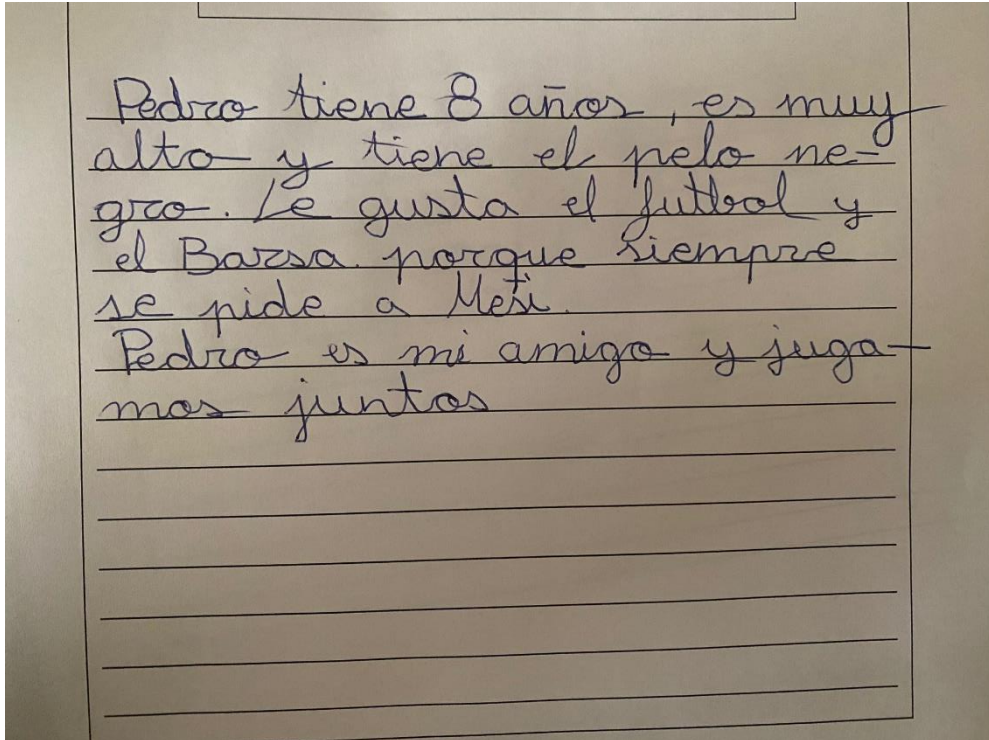 Pedro tiene 8 años, es muy
alto y tiene el pelo ne-
gro. Le gusta el futbol y
el Barsa porque siempre
se pide a Mesi.
Pedro es mi amigo y juga-
mos juntos